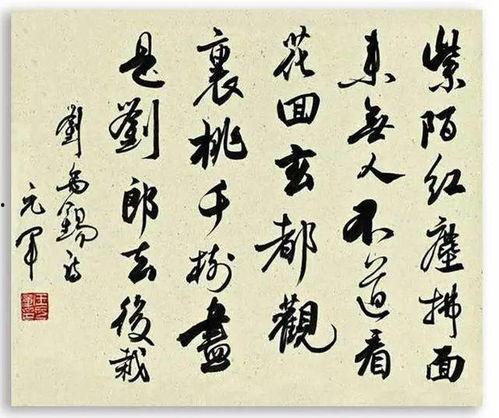 紫陌红塵拂面
来無人不道看
花回玄都觀
裏桃千树盡
是劉郎去後栽
劉禹錫诗
元军